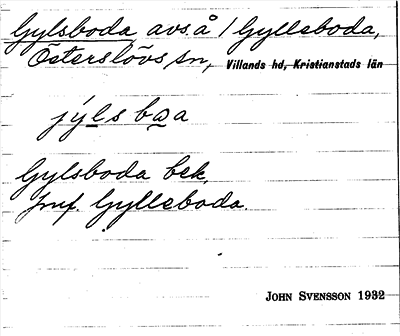 Gylsboda avs. å / Gylleboda,
Österslövs sn, Villands hd, Kristianstads län
jýls bωa
Gylsboda bek.
Jmf. Gylleboda.
JOHN SVENSSON 1932